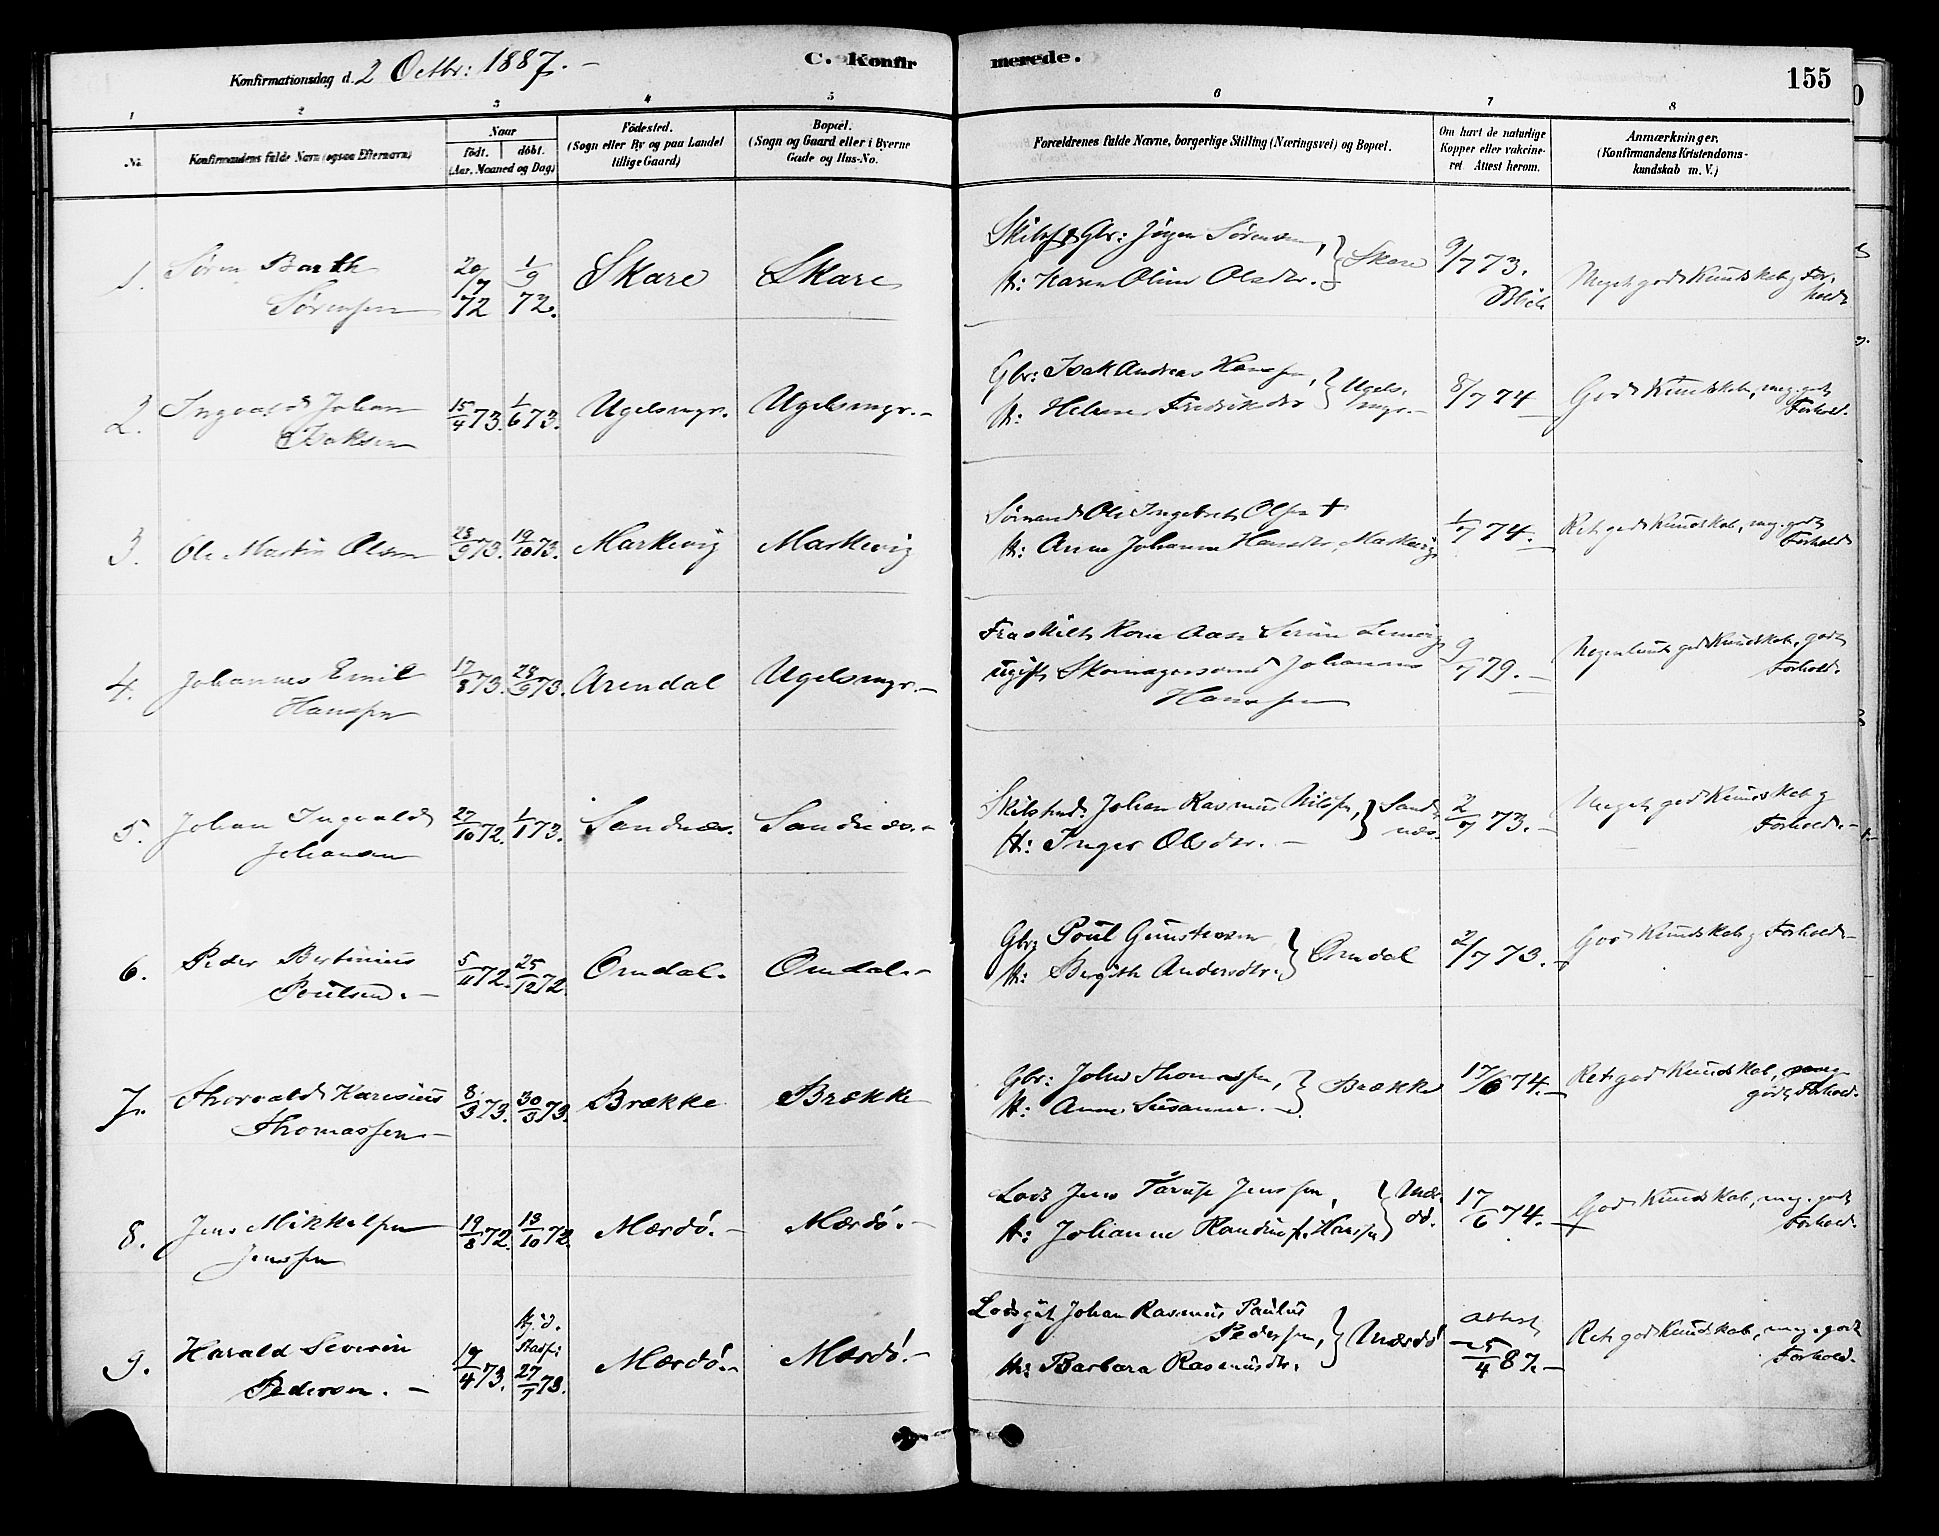 Konfirmationsdag d. 2 Octbr: 1887. –
C. Konfirmerede.
155
1 2 3 4 5 6 7 8
No.
Konfirmandens fulde Navn (ogsaa Efternavn)
Naar
födt. döbt.
(Aar, Maaned og Dag)
Födested.
(Sogn eller By og paa Landet
tillige Gaard)
Bopæl.
(Sogn og Gaard eller i Byerne
Gade og Hus-No.
Forældrenes fulde Navne, borgerlige Stilling (Næringsvei) og Bopæl.
Om havt de naturlige
Kopper eller vakcine-
ret. Attest herom.
Anmærkninger.
(Konfirmandens Kristendoms-
kundskab m. V.)
1. Søren Barth
Sørensen
20/7 72 1/9 72. Skare Skare
Gbr: Jögen Sörensen,
H: Karen Oline Olsdtr. } Skare
9/7 73.
Meget god Kundskab og For-
hold
2. Ingvald Johan
Isaksen
15/4 73. 1/6 73. Ugelsmyr. Ugelsmyr. –
Gbr: Isak Andreas Hansen,
H: Helene Fredriksdtr } Ugels-
myr. –
8/7 74
God Kundskab, meg. godt
Forhold.
3. Ole Martin Olsen
28/9 73. 19/10 73. Markevig Markevig
Sömand Ole Ingebret Olsen +
H: Anne Johanne Hansdtr, Markevig
1/7 74. –
Ret god Kundskab, mg. godt
Forhold
4. Johannes Emil
Hanssen
17/8 73. 28/9 73. Arendal Ugelsmyr. –
Fraskilt Kone Aase Serine
ugift Skomagersvend Johannes
Hanssen
9/7 79. –
Nogenlunde god Kundskab, godt
Forhold.
5. Johan Ingvald
Johansen
27/10 72. 1/1 73. Sandnæs. Sandnæs. –
Johan Rasmus Nilsen,
H: Inger Olsdtr. – } Sand-
næs.
2/7 73. –
Meget god Kundskab og
Forhold. –
6. Peder Bertinius
Poulsen. –
5/11 72. 25/12 72. Omdal. Omdal. –
Gbr: Poul Gunstensen
H: Birgith Andersdtr. } Omdal
2/7 73. –
God Kundskab og Forhold –
7. Thorvald Karesius
Thomassen –
8/3 73. 30/3 73. Brække Brække
Gbr: John Thomassen,
H: Anne Susanne. – } Brække
17/6 74. –
Ret god Kundskab, meg.
godt Forhold.
8. Jens Mikkelsen
Jenssen
19/8 72. 13/10 72. Mærdö. – Mærdö. –
Lods Jens Tarup Jenssen,
H: Johanne Randine f. Hanssen } Mær-
dö.
17/6 74. –
God Kundskab, meg. godt
Forhold.
9. Harald Severin
Pedersen. –
19/4 73. Hj. d.
Stadf:
27/7 73. Mærdö. – Mærdö. –
Lodsgut Johan Rasmus Paulus
Pedersen,
H: Barbara Rasmusdtr. } Mærdö
Attest
25/4 87. –
Ret god Kundskab, meg. godt
Forhold.